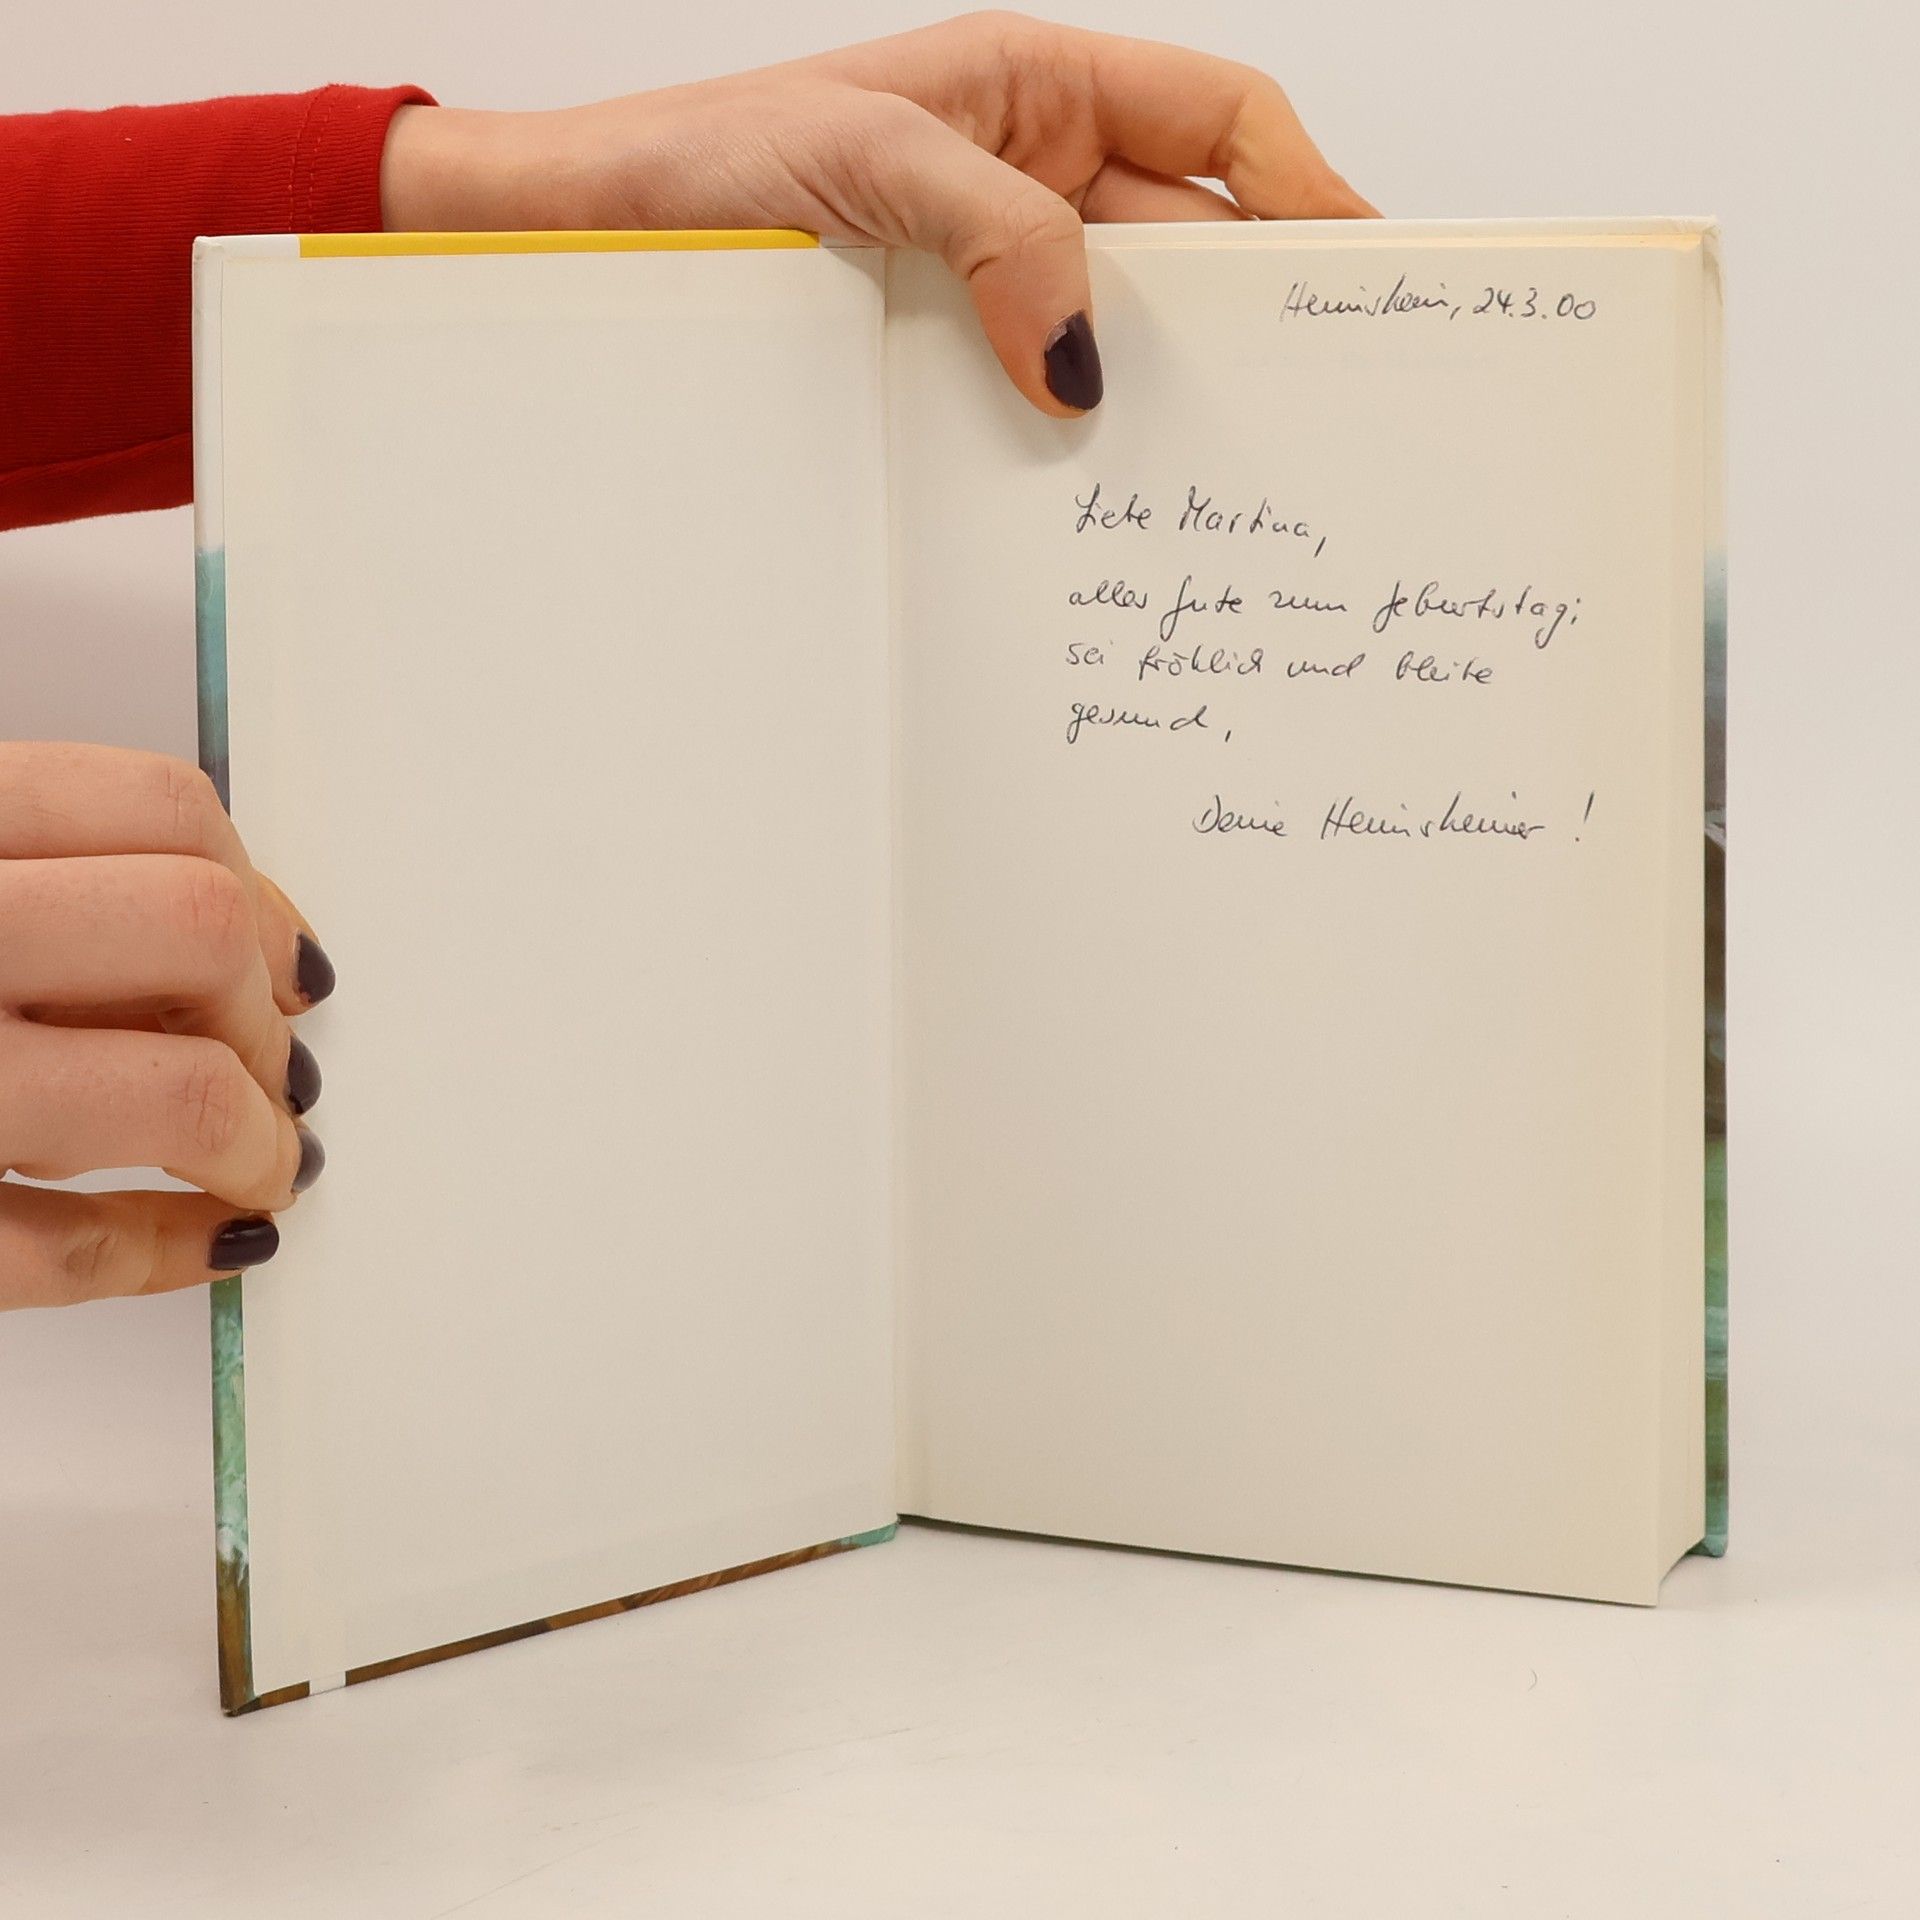 Heimsheim, 24.3.00
Liebe Martina,
alles Gute zum Geburtstag;
sei fröhlich und bleibe
gesund,
Deine Heimsheimer !